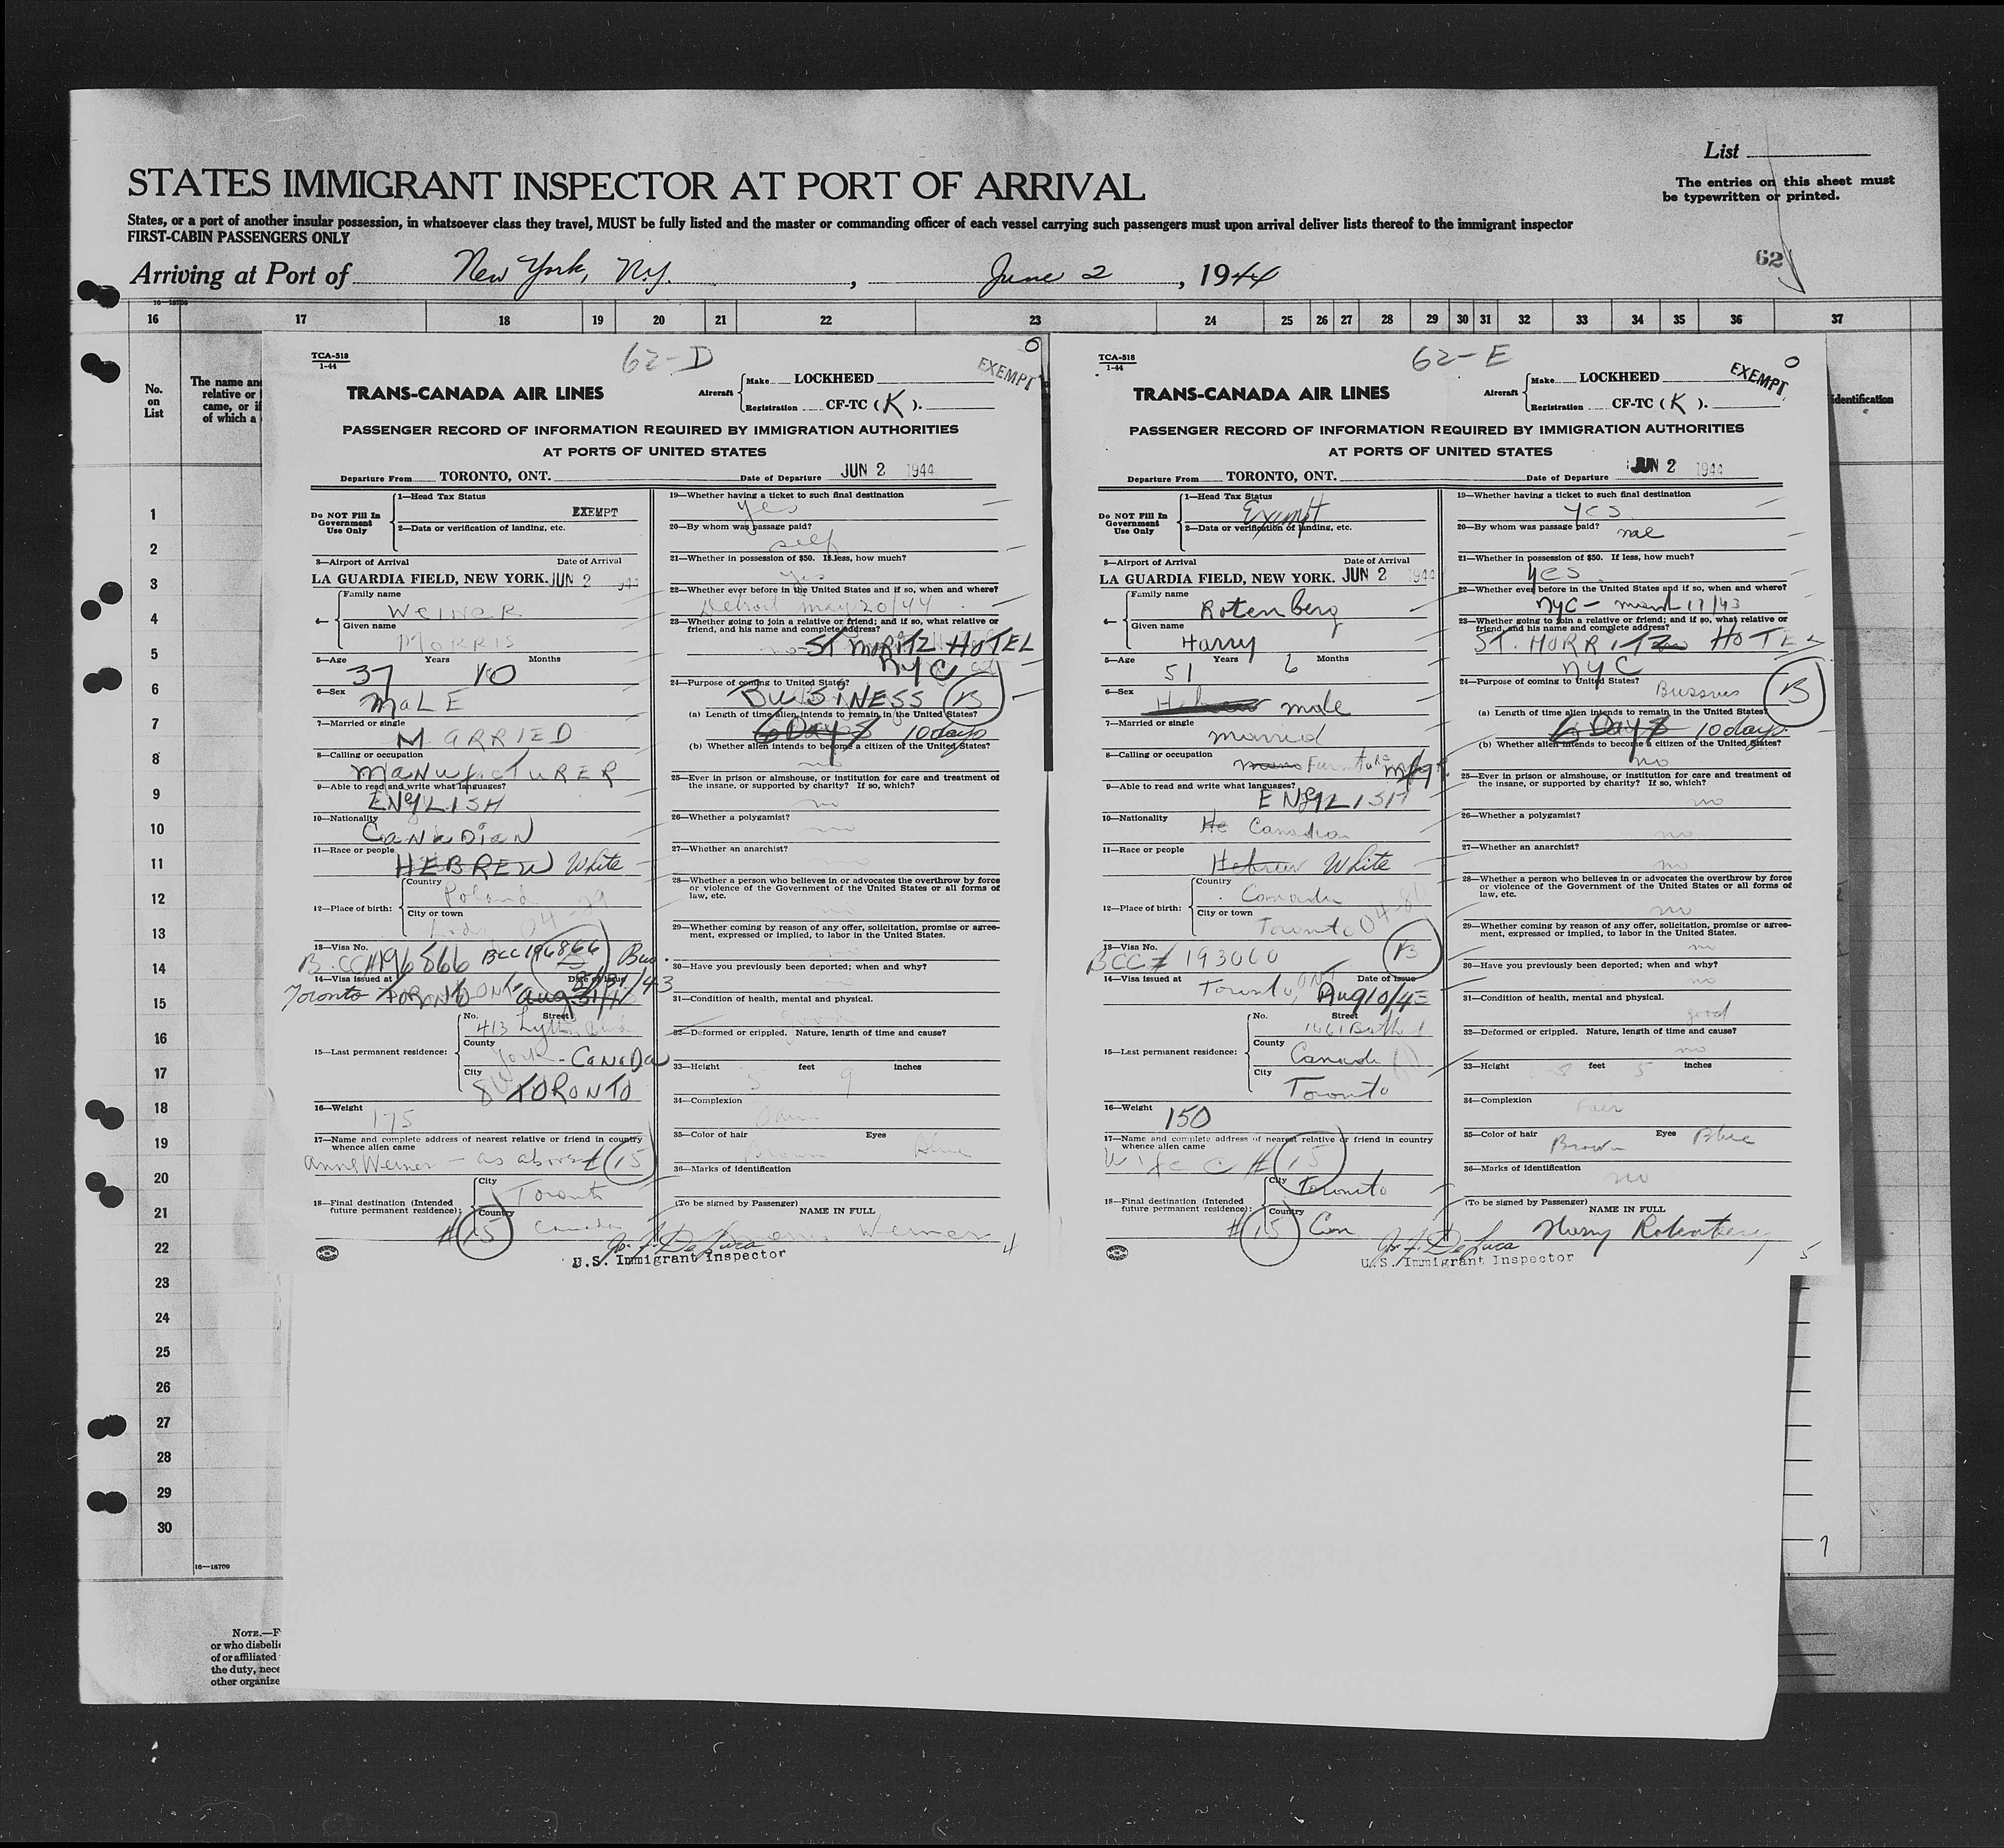 List
The entries on this sheet must
be typewritten or printed.
STATES IMMIGRANT INSPECTOR AT PORT OF ARRIVAL
States, or a port of another insular possession, in whatsoever class they travel, MUST be fully listed and the master or commanding officer of each vessel carrying such passengers must upon arrival deliver lists thereof to the immigrant inspector
FIRST-CABIN PASSENGERS ONLY
62
Arriving at Port of New York, N.Y. , June 2 , 1944
16—18709
16 17 18 19 20 21 22 23 24 25 26 27 28 29 30 31 32 33 34 35 36 37
No.
on
List
The name and
relative or
came, or if
of which a
identification
1
2
3
4
5
6
7
8
9
10
11
12
13
14
15
16
17
18
19
20
21
22
23
24
25
26
27
28
29
30
16—18709
NOTE.—F
or who disbelie
of or affiliated
the duty, nece
other organize
TCA-518
1-44
62-D
EXEMPT
TRANS-CANADA AIR LINES
Aircraft
Make LOCKHEED
Registration CF-TC (K).
PASSENGER RECORD OF INFORMATION REQUIRED BY IMMIGRATION AUTHORITIES
AT PORTS OF UNITED STATES
Departure From TORONTO, ONT. Date of Departure JUN 2 1944
Do NOT Fill In
Government
Use Only
1—Head Tax Status
EXEMPT
2—Data or verification of landing, etc.
3—Airport of Arrival Date of Arrival
LA GUARDIA FIELD, NEW YORK. JUN 2 944
4—
Family name
WEINER
Given name
MORRIS
5—Age Years Months
37 10
6—Sex
MALE
7—Married or single
MARRIED
8—Calling or occupation
MANUFACTURER
9—Able to read and write what languages?
ENGLISH
10—Nationality
CANADIAN
11—Race or people
HEBREW White
12—Place of birth:
Country
Poland
City or town
04-29
13—Visa No.
B.CC#196866 BCC196866 Bus.
14—Visa issued at Date of Issue
Toronto TORONTO ONT. Aug 31/43 8/31/43
15—Last permanent residence:
No. Street
413
County
York - CANADA
City
TORONTO
16—Weight
175
17—Name and complete address of nearest relative or friend in country
whence alien came
Anne Weiner - as above # 15
18—Final destination (Intended
future permanent residence):
City
Toronto
Country
#15 Canada
19—Whether having a ticket to such final destination
yes
20—By whom was passage paid?
self
21—Whether in possession of $50. If less, how much?
yes
22—Whether ever before in the United States and if so, when and where?
Detroit may 20/44
23—Whether going to join a relative or friend; and if so, what relative or
friend, and his name and complete address?
no ST MORITZ HOTEL
NYC
24—Purpose of coming to United States?
BUSINESS B
(a) Length of time alien intends to remain in the United States?
6 Days 10 days
(b) Whether alien intends to become a citizen of the United States?
no
25—Ever in prison or almshouse, or institution for care and treatment of
the insane, or supported by charity? If so, which?
no
26—Whether a polygamist?
no
27—Whether an anarchist?
no
28—Whether a person who believes in or advocates the overthrow by force
or violence of the Government of the United States or all forms of
law, etc.
no
29—Whether coming by reason of any offer, solicitation, promise or agree-
ment, expressed or implied, to labor in the United States.
30—Have you previously been deported; when and why?
31—Condition of health, mental and physical.
good
32—Deformed or crippled. Nature, length of time and cause?
33—Height feet inches
5 9
34—Complexion
35—Color of hair Eyes
Brown
36—Marks of identification
(To be signed by Passenger) NAME IN FULL
Weiner
4
U.S. Immigrant Inspector
TCA-518
1-44
62-E
EXEMPT
TRANS-CANADA AIR LINES
Aircraft
Make LOCKHEED
Registration CF-TC (K).
PASSENGER RECORD OF INFORMATION REQUIRED BY IMMIGRATION AUTHORITIES
AT PORTS OF UNITED STATES
Departure From TORONTO, ONT. Date of Departure JUN 2 1944
Do NOT Fill In
Government
Use Only
1—Head Tax Status
Exempt
2—Data or verification of landing, etc.
3—Airport of Arrival Date of Arrival
LA GUARDIA FIELD, NEW YORK. JUN 2 1944
4—
Family name
Rotenberg
Given name
Harry
5—Age Years Months
51 6
6—Sex
Hebrew male
7—Married or single
married
8—Calling or occupation
Furniture Mfgr
9—Able to read and write what languages?
ENGLISH
10—Nationality
He Canadian
11—Race or people
Hebrew White
12—Place of birth:
Country
Canada
City or town
Toronto
13—Visa No.
BCC # 193060 B
14—Visa issued at Date of Issue
Toronto, ONT Aug 10/43
15—Last permanent residence:
No. Street
1661
County
Canada
City
Toronto
16—Weight
150
17—Name and complete address of nearest relative or friend in country
whence alien came
Wife # 15
18—Final destination (Intended
future permanent residence):
City
Toronto
Country
#15 Can
19—Whether having a ticket to such final destination
yes
20—By whom was passage paid?
me
21—Whether in possession of $50. If less, how much?
yes
22—Whether ever before in the United States and if so, when and where?
NYC - march 17/43
23—Whether going to join a relative or friend; and if so, what relative or
friend, and his name and complete address?
ST. MORRITZ HOTEL
NYC
24—Purpose of coming to United States?
Bussnes B
(a) Length of time alien intends to remain in the United States?
6 Days 10 days
(b) Whether alien intends to become a citizen of the United States?
no
25—Ever in prison or almshouse, or institution for care and treatment of
the insane, or supported by charity? If so, which?
no
26—Whether a polygamist?
no
27—Whether an anarchist?
no
28—Whether a person who believes in or advocates the overthrow by force
or violence of the Government of the United States or all forms of
law, etc.
no
29—Whether coming by reason of any offer, solicitation, promise or agree-
ment, expressed or implied, to labor in the United States.
no
30—Have you previously been deported; when and why?
no
31—Condition of health, mental and physical.
good
32—Deformed or crippled. Nature, length of time and cause?
no
33—Height feet inches
5
34—Complexion
Fair
35—Color of hair Eyes
Brown Blue
36—Marks of identification
no
(To be signed by Passenger) NAME IN FULL
Harry Rotenberg
5
U.S. Immigrant Inspector
7